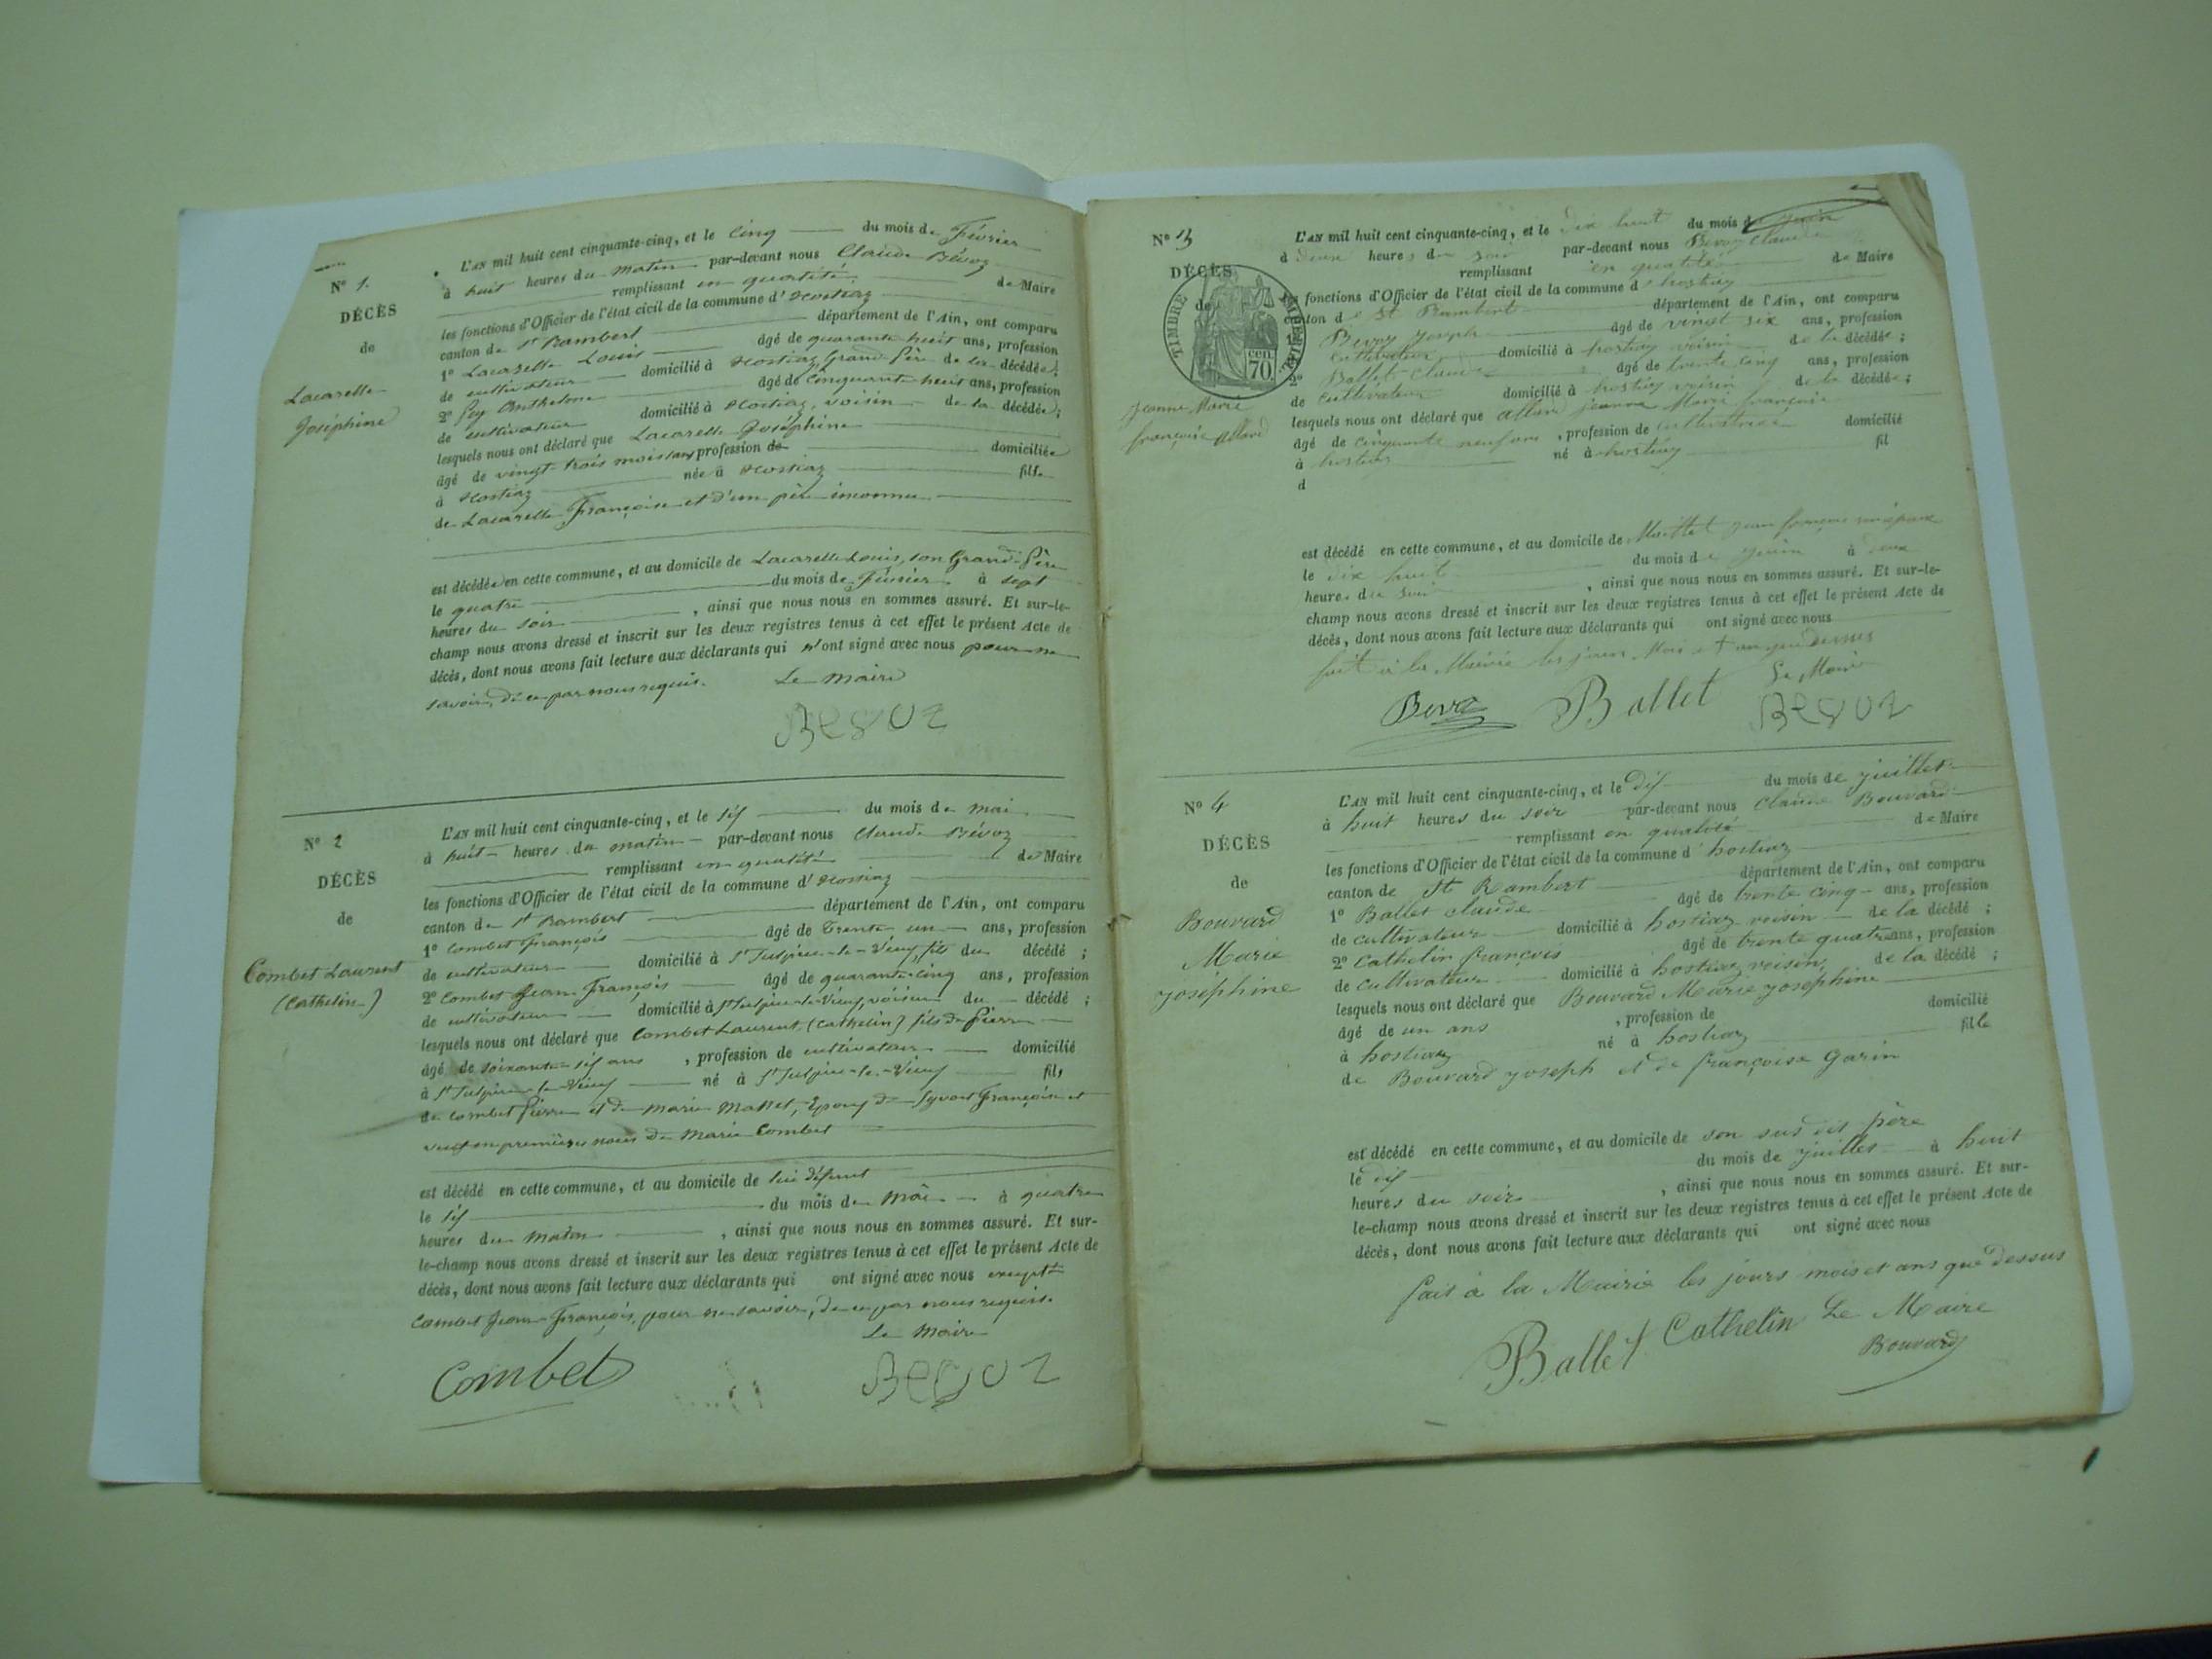 N° 1.
DÉCÈS
de
Lacarelle
Joséphine
L'AN mil huit cent cinquante-cinq, et le Cinq du mois de Février
à huit heures du matin par-devant nous Claude Bévoz
remplissant en qualité de Maire
les fonctions d'Officier de l'état civil de la commune d'Hostiaz
canton de St Rambert département de l'Ain, ont comparu
1° Lacarelle Louis âgé de quarante huit ans, profession
de cultivateur domicilié à Hostiaz, Grand-Père de la décédée;
2° Pey Anthelme âgé de cinquante huit ans, profession
de cultivateur domicilié à Hostiaz, voisin de la décédée;
lesquels nous ont déclaré que Lacarelle Joséphine
âgé de vingt-trois mois, profession de domiciliée
à Hostiaz née à Hostiaz fille
de Lacarelle Françoise et d'un père inconnu
est décédée en cette commune, et au domicile de Lacarelle Louis, son Grand-Père
le quatre du mois de Février à sept
heures du soir, ainsi que nous nous en sommes assuré. Et sur-le-
champ nous avons dressé et inscrit sur les deux registres tenus à cet effet le présent Acte de
décès, dont nous avons fait lecture aux déclarants qui n'ont signé avec nous pour ne
savoir, de ce par nous requis. Le Maire
Besoz
N° 2
DÉCÈS
de
Combet Laurent
(Cathelin)
L'AN mil huit cent cinquante-cinq, et le dix du mois de mai
à huit heures du matin par-devant nous Claude Bévoz
remplissant en qualité de Maire
les fonctions d'Officier de l'état civil de la commune d'Hostiaz
canton de St Rambert département de l'Ain, ont comparu
1° Combet François âgé de Trente un ans, profession
de cultivateur domicilié à St Sulpice-le-Vieux, fils du décédé;
2° Combet Jean-François âgé de quarante-cinq ans, profession
de cultivateur domicilié à St Sulpice-le-Vieux, voisin du décédé;
lesquels nous ont déclaré que Combet Laurent, (Cathelin) fils de Pierre
âgé de soixante-dix ans, profession de cultivateur domicilié
à St Sulpice-le-Vieux né à St Sulpice-le-Vieux fils
de Combet Pierre et de Marie Massel, Epoux de Françoise et
veuf en premières noces de Marie Combet
est décédé en cette commune, et au domicile de lui défunt
le dix du mois de Mai à quatre
heures du matin, ainsi que nous nous en sommes assuré. Et sur-
le-champ nous avons dressé et inscrit sur les deux registres tenus à cet effet le présent Acte de
décès, dont nous avons fait lecture aux déclarants qui ont signé avec nous excepté
Combet Jean-François, pour ne savoir, de ce par nous requis.
Le Maire
Combet Besoz
N° 3
DÉCÈS
de
TIMBRE IMPÉRIAL
70 cen.
Jeanne Marie
françoise allard
L'AN mil huit cent cinquante-cinq, et le dix huit du mois de juin
à deux heures du soir par-devant nous Bevoz Claude
remplissant en qualité de Maire
les fonctions d'Officier de l'état civil de la commune d'hostiaz
canton de St Rambert département de l'Ain, ont comparu
1° Bevoz Joseph âgé de vingt six ans, profession
cultivateur domicilié à hostiaz voisin de la décédée;
2° Ballet Claude âgé de trente cinq ans, profession
de cultivateur domicilié à hostiaz voisin de la décédée;
lesquels nous ont déclaré que allard jeanne Marie françoise
âgé de cinquante neuf ans, profession de cultivatrice domicilié
à hostiaz né à hostiaz fil
d
est décédé en cette commune, et au domicile de Maillet jean françois
le dix huit du mois de juin à deux
heures du soir, ainsi que nous nous en sommes assuré. Et sur-le-
champ nous avons dressé et inscrit sur les deux registres tenus à cet effet le présent Acte de
décès, dont nous avons fait lecture aux déclarants qui ont signé avec nous
fait à la Mairie les jour, Mois et an que dessus
Le Maire
Bevoz Ballet Besoz
N° 4
DÉCÈS
de
Bouvard
Marie
joséphine
L'AN mil huit cent cinquante-cinq, et le dix du mois de juillet
à huit heures du soir par-devant nous Claude Bouvard
remplissant en qualité de Maire
les fonctions d'Officier de l'état civil de la commune d'hostiaz
canton de St Rambert département de l'Ain, ont comparu
1° Ballet claude âgé de trente cinq ans, profession
de cultivateur domicilié à hostiaz voisin de la décédé;
2° Cathelin françois âgé de trente quatre ans, profession
de cultivateur domicilié à hostiaz voisin, de la décédé;
lesquels nous ont déclaré que Bouvard Marie josephine
âgé de un ans, profession de domicilié
à hostiaz né à hostiaz fille
de Bouvard joseph et de françoise Garin
est décédé en cette commune, et au domicile de son sus dit père
le dix du mois de juillet à huit
heures du soir, ainsi que nous nous en sommes assuré. Et sur-
le-champ nous avons dressé et inscrit sur les deux registres tenus à cet effet le présent Acte de
décès, dont nous avons fait lecture aux déclarants qui ont signé avec nous
fait à la Mairie les jours mois et ans que dessus
Ballet Cathelin Le Maire
Bouvard